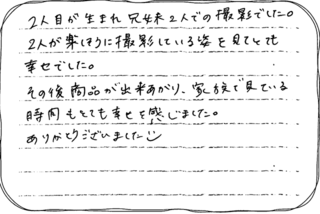 2人目が生まれ兄弟2人での撮影でした。
2人が楽しそうに撮影している姿を見てとても
幸せでした。
その後商品が出来あがり、家族で見ている
時間もとても幸せを感じました。
ありがとうございました